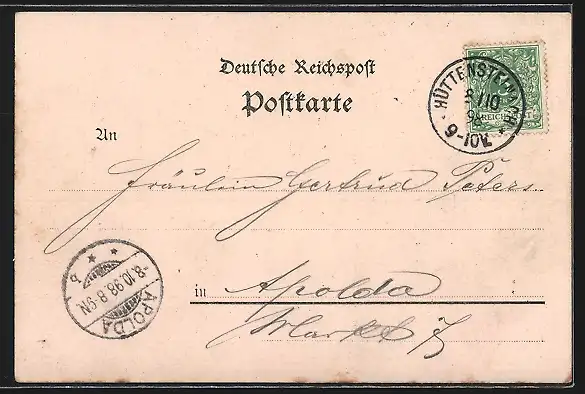 Deutsche Reichspost
Postkarte
HÜTTENSTEINACH
8/10
98
9-10V.
REICHSPOST
An
Fräulein Gertrud Peters
in Apolda
Markt 7
APOLDA
-8.10.98.8-9N
b